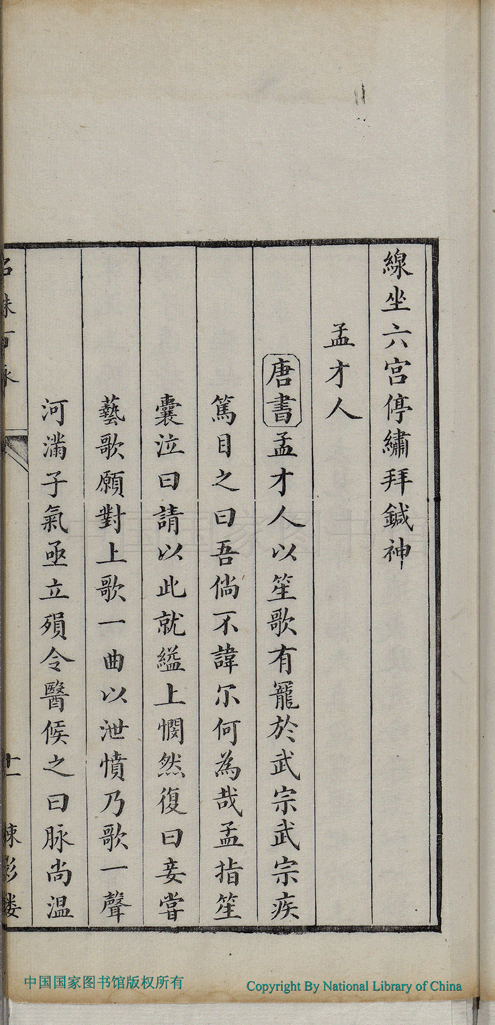 線坐六宮停繡拜鍼神
孟才人
唐書孟才人以笙歌有寵於武宗武宗疾
篤目之曰吾倘不諱尔何為哉孟指笙
囊泣曰請以此就縊上憫然復曰妾嘗
藝歌願對上歌一曲以泄憤乃歌一聲
河滿子氣亟立殞令醫候之曰脉尚温
十一
中国国家图书馆版权所有
Copyright By National Library of China